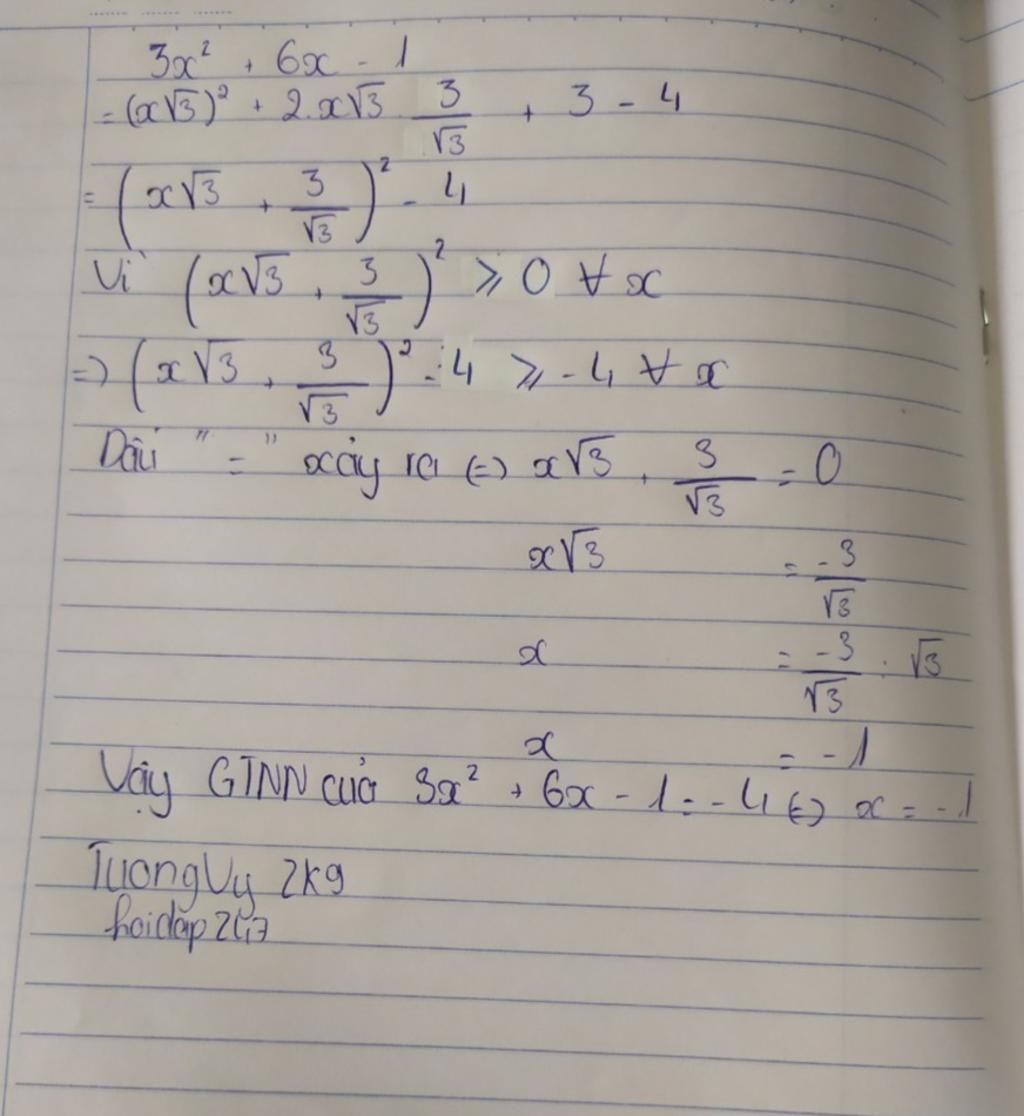 3x² + 6x - 1
= (x√3)² + 2.x√3 . 3/√3 + 3 - 4
= (x√3 + 3/√3)² - 4
Vì (x√3 + 3/√3)² ≥ 0 ∀ x
=> (x√3 + 3/√3)² - 4 ≥ -4 ∀ x
Dấu "=" xảy ra (=) x√3 + 3/√3 = 0
x√3 = -3/√3
x = -3/√3 : √3
x = -1
Vậy GTNN của 3x² + 6x - 1 = -4 (=) x = -1
TuongVy 2k9
hoidap247